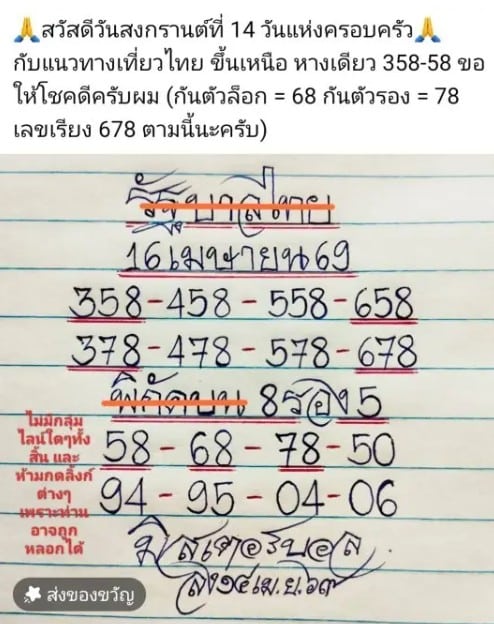 🙏สวัสดีวันสงกรานต์ที่ 14 วันแห่งครอบครัว🙏
กับแนวทางเที่ยวไทย ขึ้นเหนือ หางเดียว 358-58 ขอ
ให้โชคดีครับผม (กันตัวล็อก = 68 กันตัวรอง = 78
เลขเรียง 678 ตามนี้นะครับ)
รัฐบาลไทย
16 เมษายน 69
358-458-558-658
378-478-578-678
พิกัดบน 8 รอง 5
58-68-78-50
94-95-04-06
ไม่มีกลุ่ม
ไลน์ใดๆทั้ง
สิ้น และ
ห้ามกดลิ้งก์
ต่างๆ
เพราะท่าน
อาจถูก
หลอกได้
มิสเตอร์บอล
ส่งของขวัญ